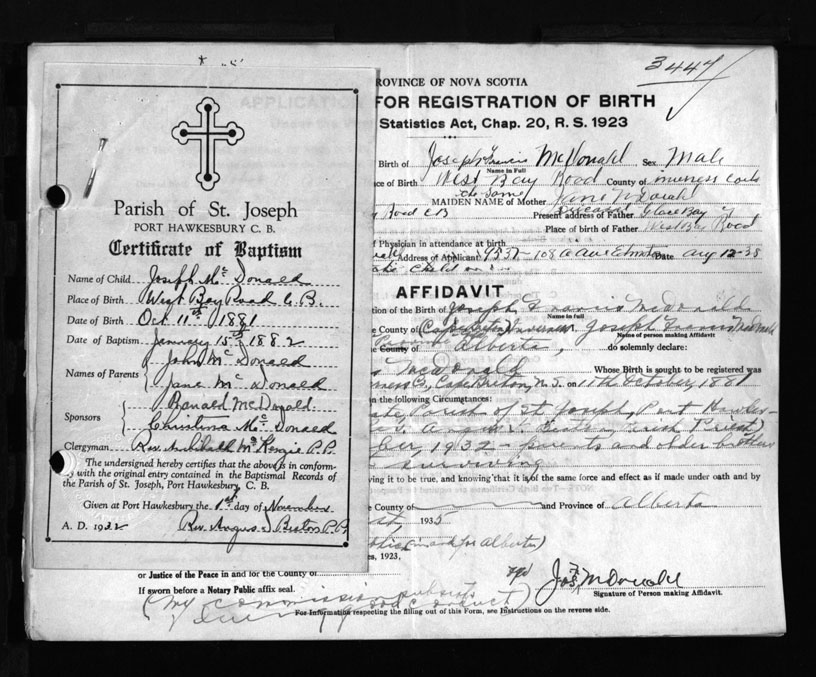 Parish of St. Joseph
PORT HAWKESBURY C. B.
Certificate of Baptism
Name of Child Joseph Mc Donald
Place of Birth West Bay Road C. B.
Date of Birth Oct 11th 1881
Date of Baptism January 15th 1882
Names of Parents { John Mc Donald
Jane Mc Donald
Sponsors { Ranald McDonald
Christina Mc Donald
Clergyman Rev. Archibald McKenzie P.P.
The undersigned hereby certifies that the above is in conform-
ity with the original entry contained in the Baptismal Records of
the Parish of St. Joseph, Port Hawkesbury, C. B.
Given at Port Hawkesbury the 1st day of November
A. D. 1932 Rev. Angus Beaton P.P.
3447
PROVINCE OF NOVA SCOTIA
FOR REGISTRATION OF BIRTH
Statistics Act, Chap. 20, R. S. 1923
Birth of Joseph Francis McDonald Sex Male
Name in Full
Place of Birth West Bay Road County of
the same
MAIDEN NAME of Mother Jane McDonald
Road CB Present address of Father Glace Bay
Place of birth of Father West Bay Road
of Physician in attendance at birth
Address of Applicant 9537-108 A Ave Date Aug 12-35
AFFIDAVIT
tion of the Birth of Joseph Francis McDonald
Name in full
the County of Joseph Francis McDonald
Name of person making Affidavit
the County of Alberta, do solemnly declare:
McDonald Whose birth is sought to be registered was
Cape Breton, N.S. on 11th October 1881
the following Circumstances:
Parish of St Joseph, Port Hawkes-
Angus Beaton, Parish Priest)
1932 - parents and older brothers
surviving
ving it to be true, and knowing that it is of the same force and effect as if made under oath and by
the County of and Province of Alberta
1935
(in and for Alberta)
es, 1923,
or Justice of the Peace in and for the County of
Jos. F. McDonald
Signature of Person making Affidavit.
If sworn before a Notary Public affix seal.
(My commission subsists
during good conduct)
For Information respecting the filling out of this Form, see Instructions on the reverse side.